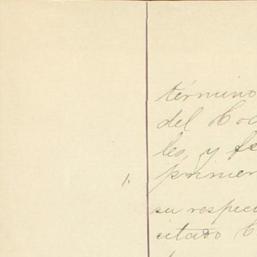 término
del Co
les, y fe
1. primer
su respec
citado C